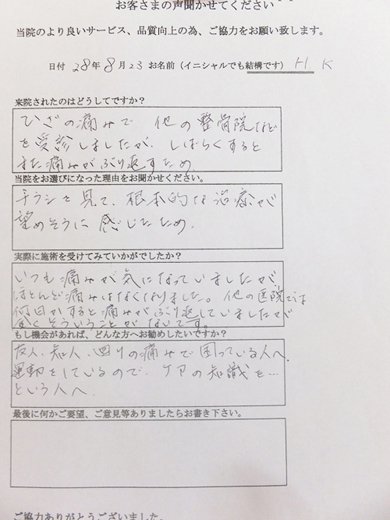 お客さまの声聞かせてください
当院のより良いサービス、品質向上の為、ご協力をお願い致します。
日付 28年8月23 お名前（イニシャルでも結構です） H K
来院されたのはどうしてですか？
ひざの痛みで 他の整骨院など
を受診しましたが、しばらくすると
また痛みがぶり返すため
当院をお選びになった理由をお聞かせください。
チラシを見て、根本的な治療が
望めそうに感じたため.
実際に施術を受けてみていかがでしたか？
いつも痛みが気になっていましたが
ほとんど痛みはなくなりました。他の医院では
何日かすると痛みがぶり返していましたが
全くそういうことがないです。
もし機会があれば、どんな方へお勧めしたいですか？
友人、知人、周りの痛みで困っている人へ、
運動をしているので、ケアの知識を…
という人へ.
最後に何かご要望、ご意見等ありましたらお書き下さい。
ご協力ありがとうございました。